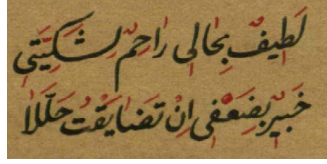 لَطِيفٌ بِحَالِى رَاحِمٌ لِشَكِيَّتِى
خَبِيرٌ بِضَعْفِى اِنْ تَضَايَقْتُ حَلَّلَا